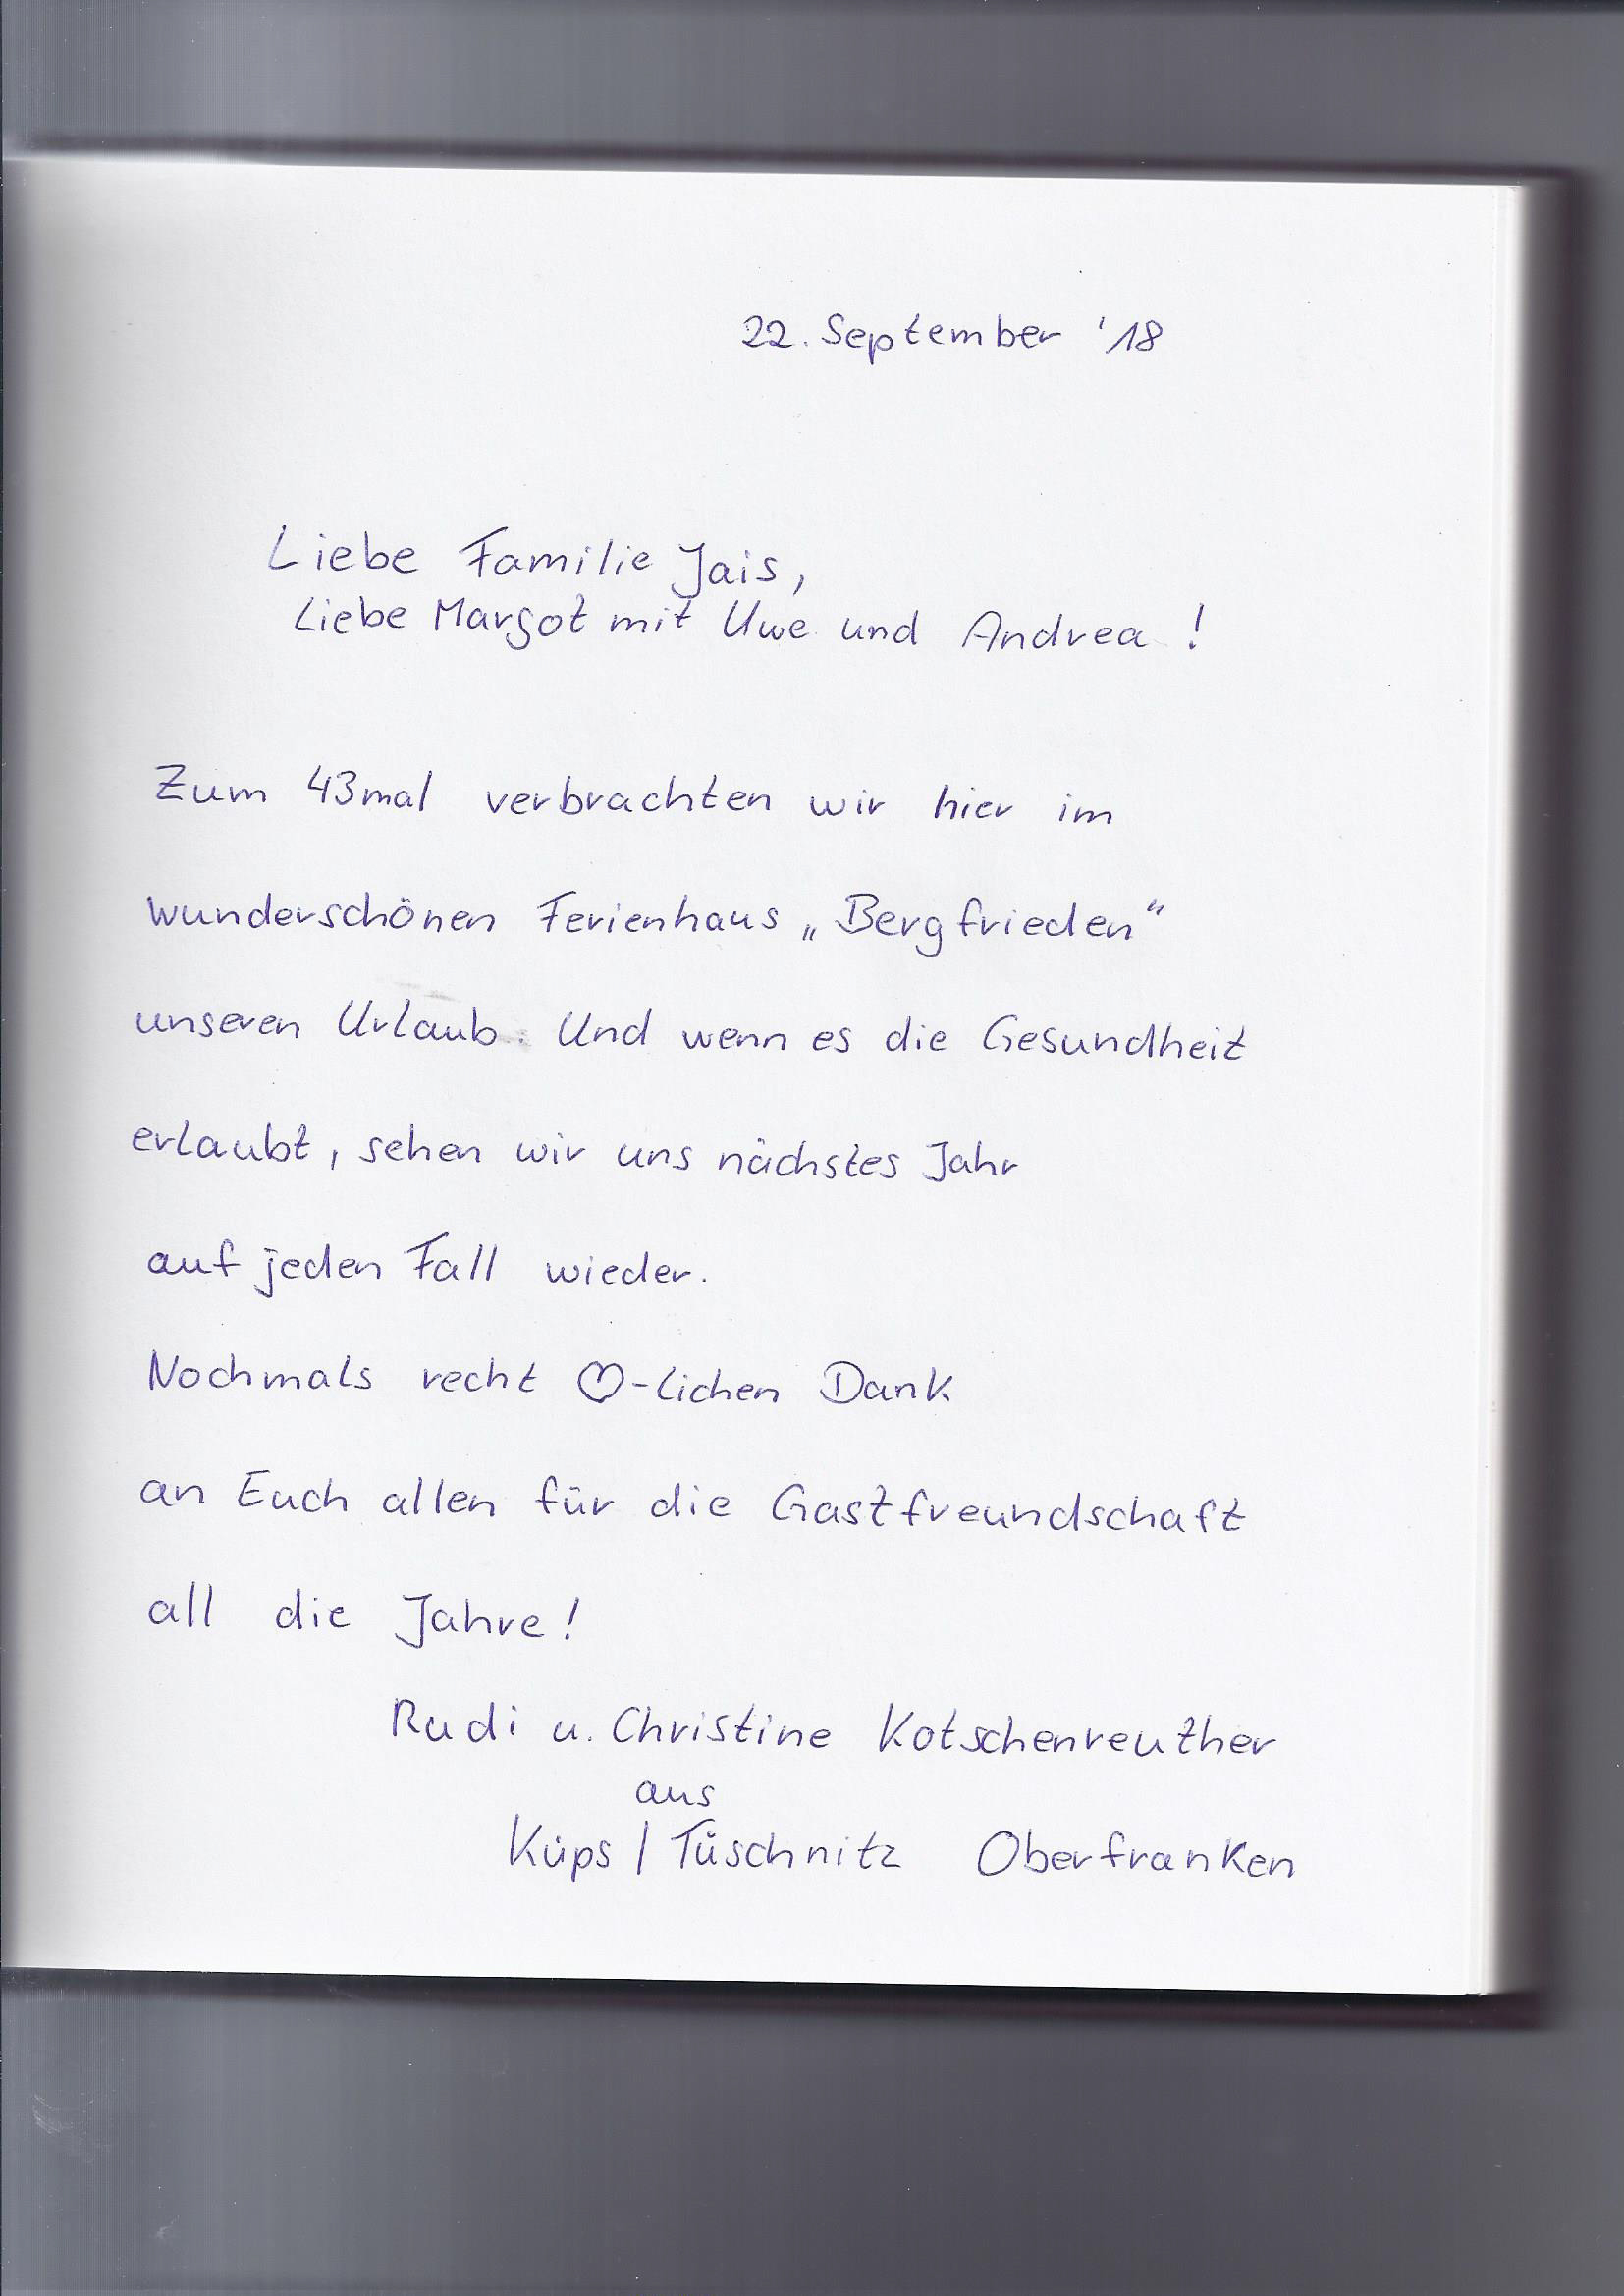 22. September '18
Liebe Familie Jais,
Liebe Margot mit Uwe und Andrea !
Zum 43mal verbrachten wir hier im
wunderschönen Ferienhaus „Bergfrieden“
unseren Urlaub. Und wenn es die Gesundheit
erlaubt, sehen wir uns nächstes Jahr
auf jeden Fall wieder.
Nochmals recht ♡-lichen Dank
an Euch allen für die Gastfreundschaft
all die Jahre!
Rudi u. Christine Kotschenreuther
aus
Küps / Tüschnitz Oberfranken